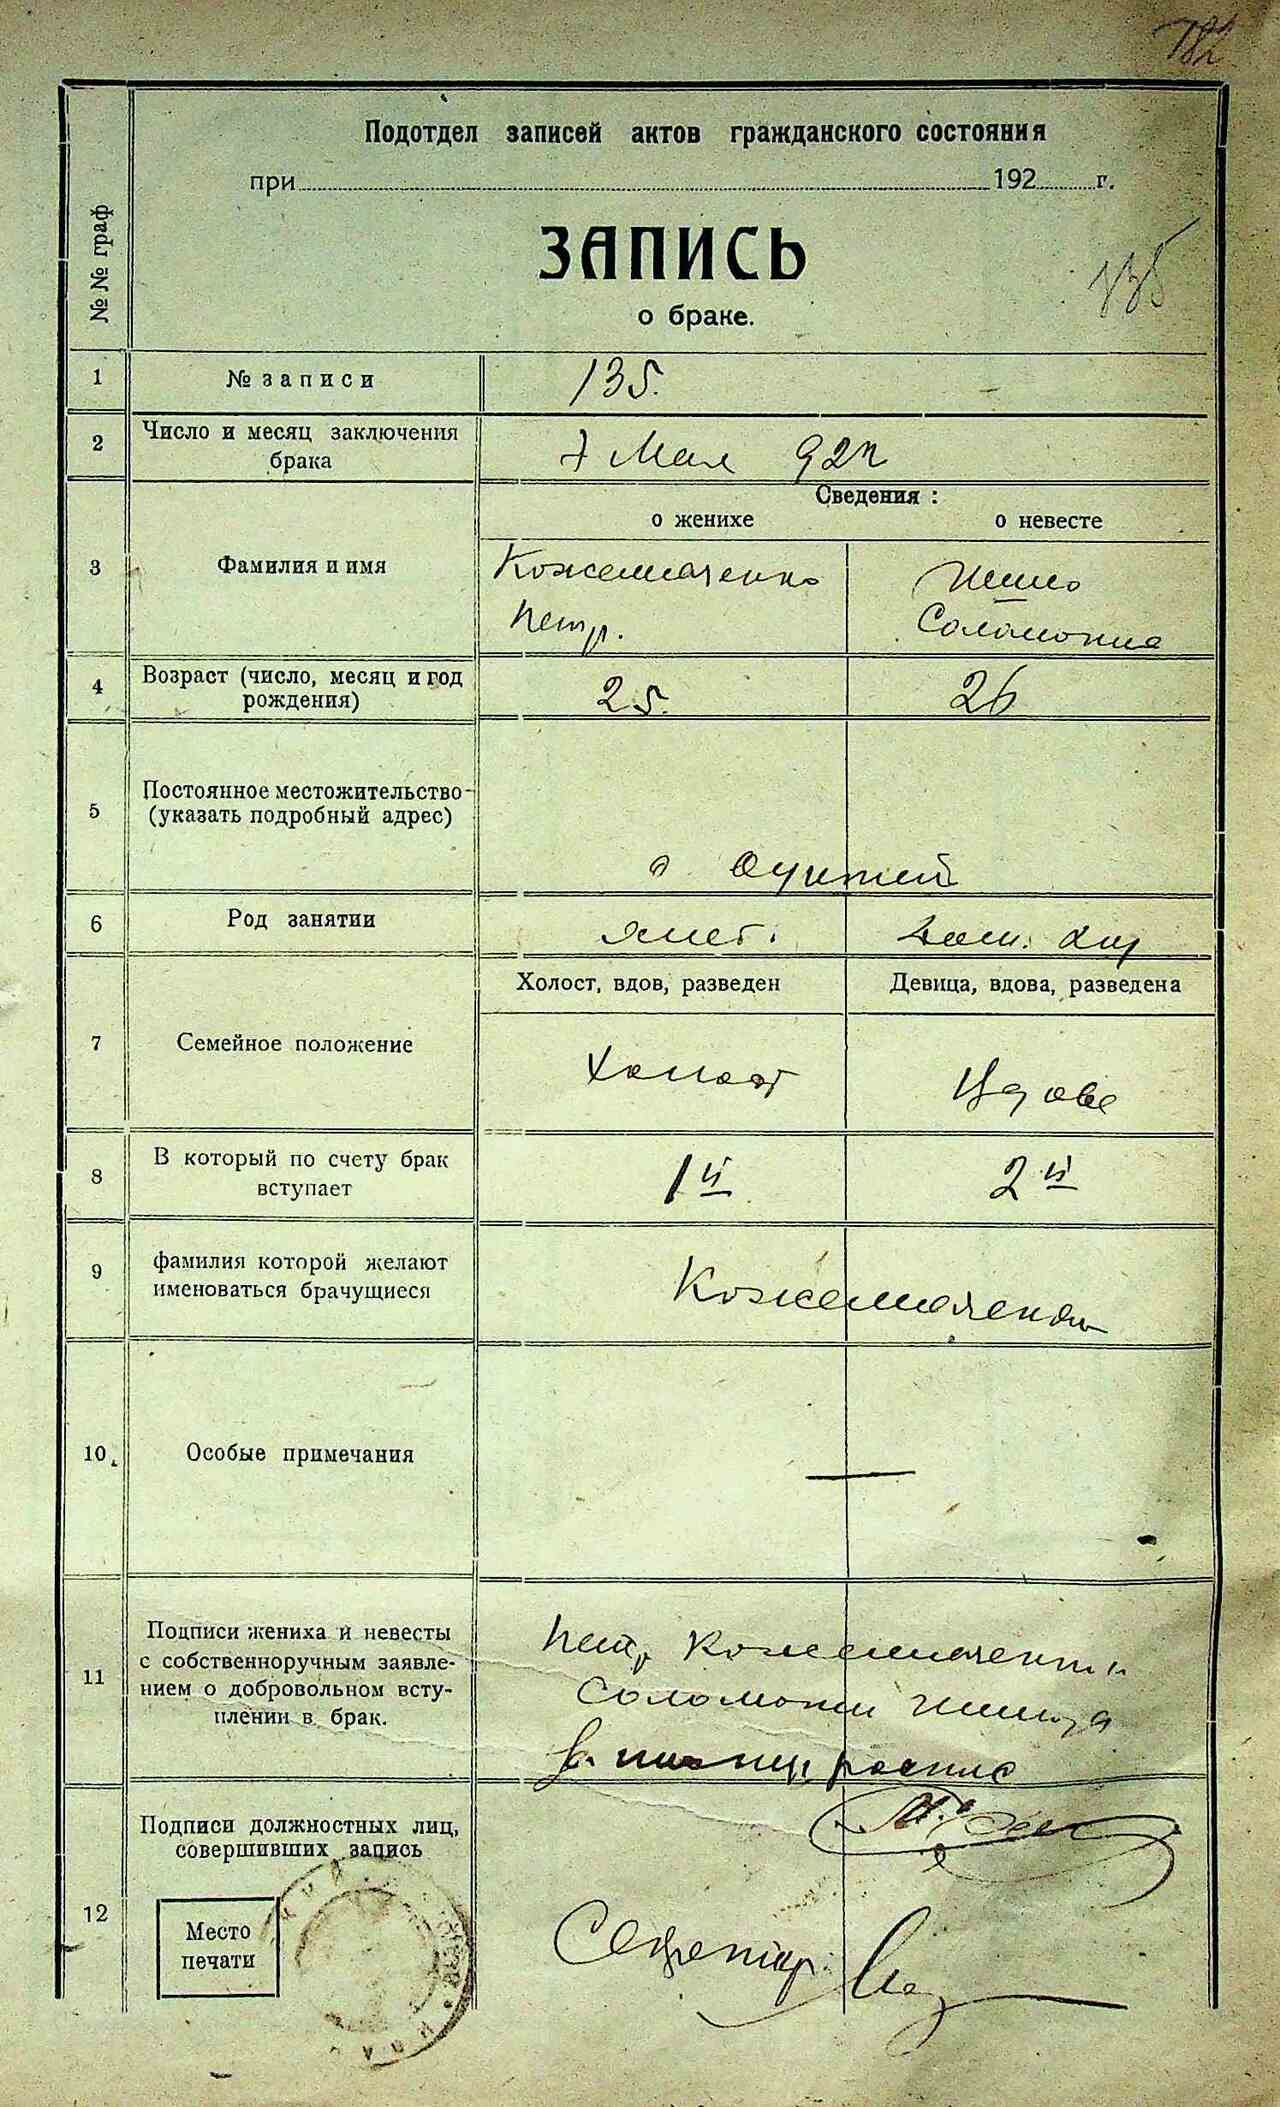 Подотдел записей актов гражданского состояния
при 192 г.
ЗАПИСЬ
о браке.
135
№№ граф
1 № записи 135.
2 Число и месяц заключения
брака
7 Мая 922
Сведения :
о женихе о невесте
3 Фамилия и имя
Кожемяченко
Петр.
Соломония
4 Возраст (число, месяц и год
рождения)
25. 26
5 Постоянное местожительство
(указать подробный адрес)
6 Род занятии
7 Семейное положение
Холост, вдов, разведен Девица, вдова, разведена
Холост Вдова
8 В который по счету брак
вступает
1й 2й
9 фамилия которой желают
именоваться брачущиеся
Кожемяченко
10 Особые примечания
—
11 Подписи жениха и невесты
с собственноручным заявле-
нием о добровольном всту-
плении в брак.
Петр Кожемяченко
Соломония
12 Подписи должностных лиц,
совершивших запись
Место
печати
Секретарь